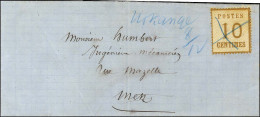 Uckange
POSTES
10
CENTIMES
Monsieur Humbert
Ingénieur mécanicien
Rue Mazelle
Metz